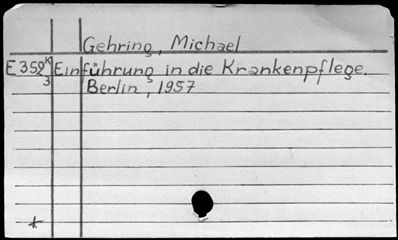 Gehring, Michael
E 352 K Einführung in die Krankenpflege.
3 Berlin, 1957